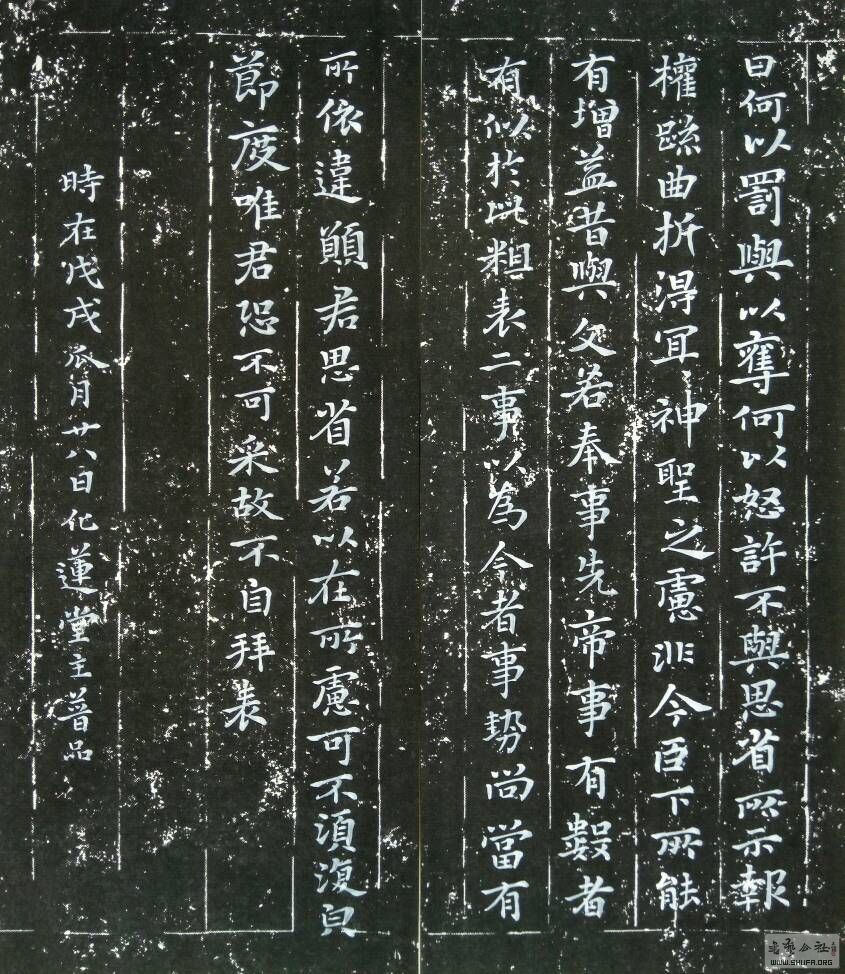 曰何以罰與以奪何以怒許不與思省所示報
權疏曲折得宜神聖之慮非今臣下所能
有增益昔與文若奉事先帝事有數者
有似於此粗表二事以為今者事勢尚當有
所依違願君思省若以在所慮可不須復皃
節度唯君恐不可采故不自拜表
時在戊戌瓜月廿八日化蓮堂主普品
WWW.SHUFA.ORG